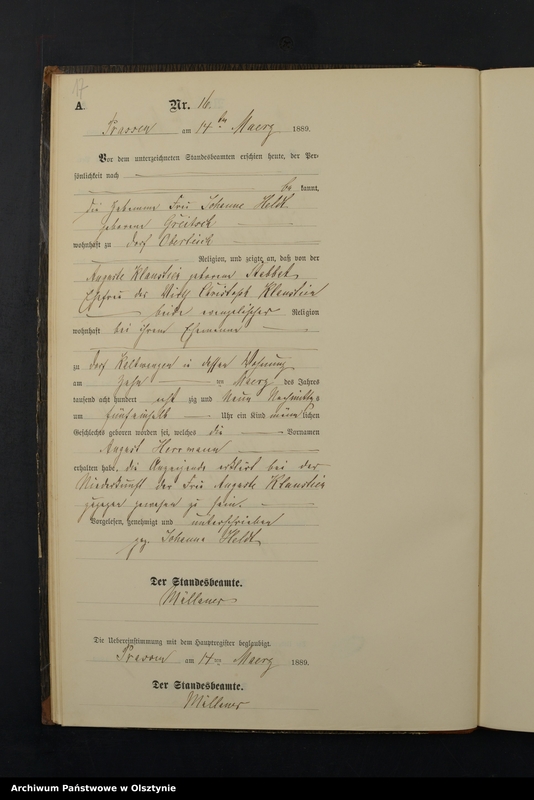 17
A.
Nr. 16.
Prassen am 14ten Maerz 1889.
Vor dem unterzeichneten Standesbeamten erschien heute, der Per-
sönlichkeit nach
be kannt,
die Hebamme Frau Johanne Heldt
geborene
wohnhaft zu Dorf
Religion, und zeigte an, daß von der
Auguste Klaustein geborene Stabbat
Ehefrau des Wirth Christoph Klaustein
beide evangelischer Religion
wohnhaft bei ihrem Ehemanne
zu Dorf in dessen Wohnung
am zehn ten Maerz des Jahres
tausend acht hundert acht zig und neun Nachmittags
um fünfeinhalb Uhr ein Kind männ lichen
Geschlechts geboren worden sei, welches die Vornamen
August Herrmann
erhalten habe, die Anzeigende erklärt bei der
Niederkunft der Frau Auguste Klaustein
zugegen gewesen zu sein.
Vorgelesen, genehmigt und unterschrieben
gez. Johanne Heldt
Der Standesbeamte.
Millauer
Die Uebereinstimmung mit dem Hauptregister beglaubigt.
Prassen am 14ten Maerz 1889.
Der Standesbeamte.
Millauer
Archiwum Państwowe w Olsztynie